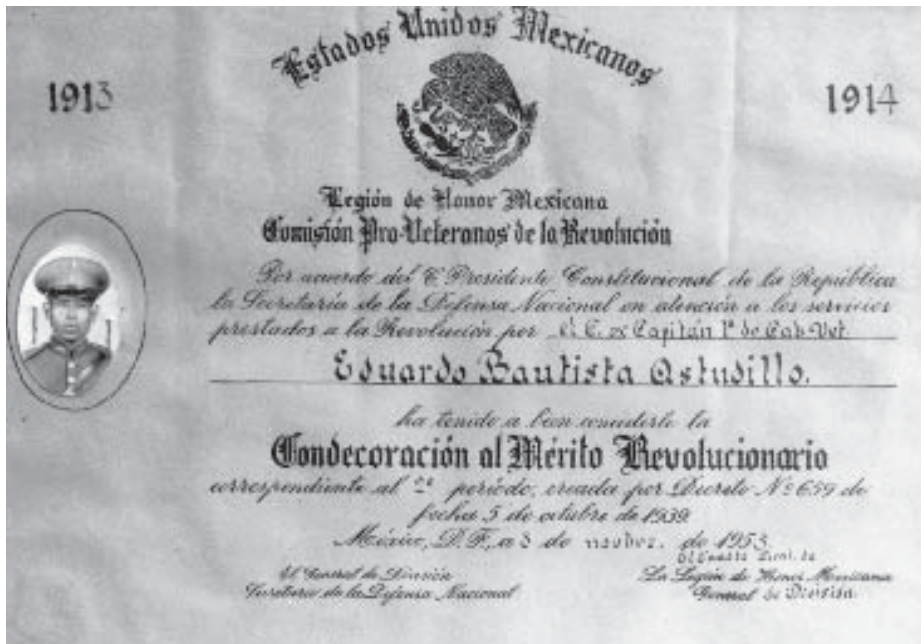 Estados Unidos Mexicanos
1913
1914
Legión de Honor Mexicana
Comisión Pro-Veteranos de la Revolución
Por acuerdo del C. Presidente Constitucional de la República
la Secretaría de la Defensa Nacional en atención a los servicios
prestados a la Revolución por el C. ex Capitán 1º de Cab. Vet.
Eduardo Bautista Astudillo.
ha tenido a bien concederle la
Condecoración al Mérito Revolucionario
correspondiente al 2º período, creada por Decreto Nº 659 de
fecha 5 de octubre de 1939.
México, D.F., a 3 de novbre. de 1953.
El Gral. de
El General de División
Secretario de la Defensa Nacional
La Legión de Honor Mexicana
General de División.